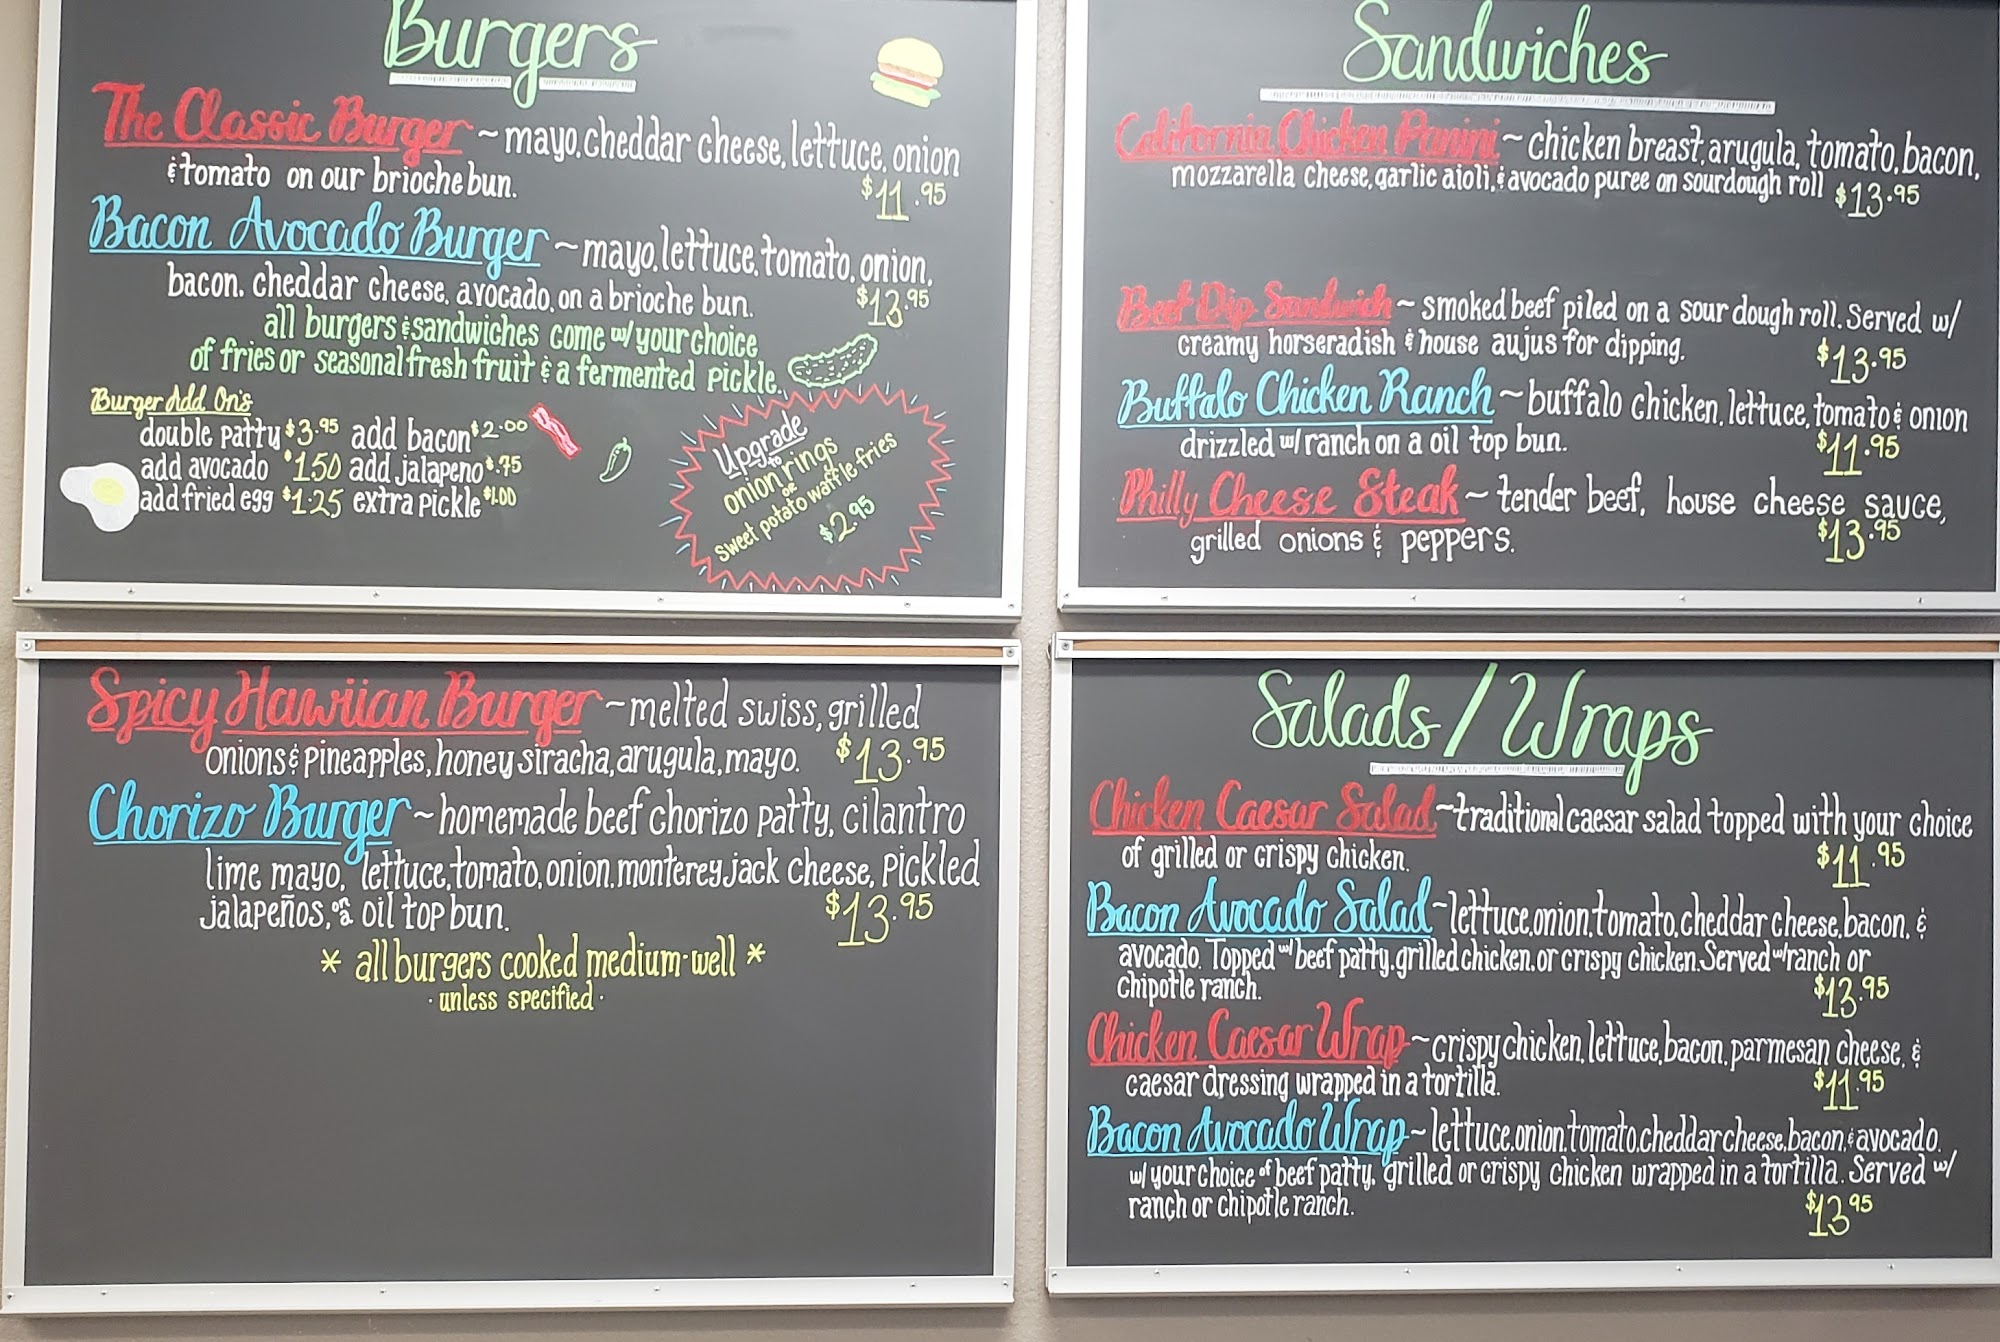 Burgers
The Classic Burger ~ mayo, cheddar cheese, lettuce, onion
& tomato on our brioche bun. $11.95
Bacon Avocado Burger ~ mayo, lettuce, tomato, onion,
bacon, cheddar cheese, avocado, on a brioche bun. $13.95
all burgers & sandwiches come w/ your choice
of fries or seasonal fresh fruit & a fermented pickle.
Burger Add On's
double patty $3.95 add bacon $2.00
add avocado $1.50 add jalapeno $.75
add fried egg $1.25 extra pickle $1.00
Upgrade
to
onion rings
or
sweet potato waffle fries
$2.95
Spicy Hawiian Burger ~ melted swiss, grilled
onions & pineapples, honey siracha, arugula, mayo. $13.95
Chorizo Burger ~ homemade beef chorizo patty, cilantro
lime mayo, lettuce, tomato, onion, monterey jack cheese, pickled
jalapeños, on a oil top bun. $13.95
* all burgers cooked medium-well *
· unless specified ·
Sandwiches
California Chicken Panini ~ chicken breast, arugula, tomato, bacon,
mozzarella cheese, garlic aioli, & avocado puree on sourdough roll $13.95
Beef Dip Sandwich ~ smoked beef piled on a sour dough roll. Served w/
creamy horseradish & house aujus for dipping. $13.95
Buffalo Chicken Ranch ~ buffalo chicken, lettuce, tomato & onion
drizzled w/ ranch on a oil top bun. $11.95
Philly Cheese Steak ~ tender beef, house cheese sauce,
grilled onions & peppers. $13.95
Salads/Wraps
Chicken Caesar Salad ~ traditional caesar salad topped with your choice
of grilled or crispy chicken. $11.95
Bacon Avocado Salad ~ lettuce, onion, tomato, cheddar cheese, bacon, &
avocado. Topped w/ beef patty, grilled chicken, or crispy chicken. Served w/ ranch or
chipotle ranch. $13.95
Chicken Caesar Wrap ~ crispy chicken, lettuce, bacon, parmesan cheese, &
caesar dressing wrapped in a tortilla. $11.95
Bacon Avocado Wrap ~ lettuce, onion, tomato, cheddar cheese, bacon, & avocado.
w/ your choice of beef patty, grilled or crispy chicken wrapped in a tortilla. Served w/
ranch or chipotle ranch. $13.95